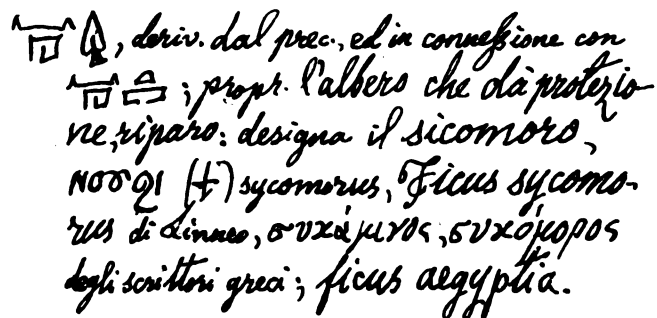 𓈖𓉔𓆭, deriv. dal prec., ed in connessione con
𓈖𓉔𓏏𓉐; propr. l'albero che dà protezio-
ne, riparo: designa il sicomoro,
ⲛⲟⲩϩⲓ (ϯ) sycomorus, Ficus sycomo-
rus di Linneo, συκάμινος, συκόμορος
degli scrittori greci; ficus aegyptia.